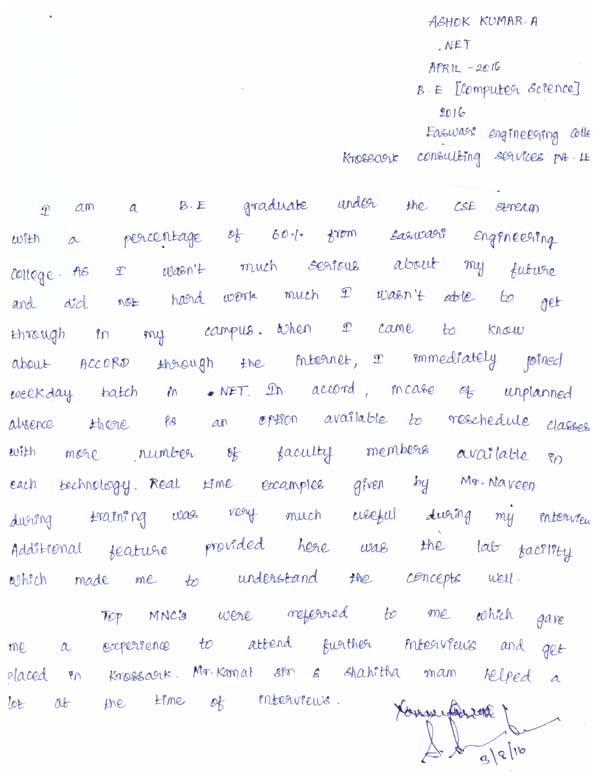 ASHOK KUMAR.A
.NET
APRIL - 2016
B.E [Computer Science]
2016
Easwari Engineering Colle
Krossark consulting services pvt. Lt
I am a B.E graduate under the CSE stream
with a percentage of 60% from Easwari Engineering
College. As I wasn't much serious about my future
and did not hard work much I wasn't able to get
through in my campus. When I came to know
about ACCORD through the internet, I immediately joined
weekday batch in .NET. In accord, incase of unplanned
absence there is an option available to reschedule classes
with more number of faculty members available in
each technology. Real time examples given by Mr. Naveen
during training was very much useful during my interview
Additional feature provided here was the lab facility
which made me to understand the concepts well.
Top MNC's were referred to me which gave
me a experience to attend further interviews and get
placed in Krossark. Mr. Kamal sir & shahitha mam helped a
lot at the time of interviews.
3/8/16